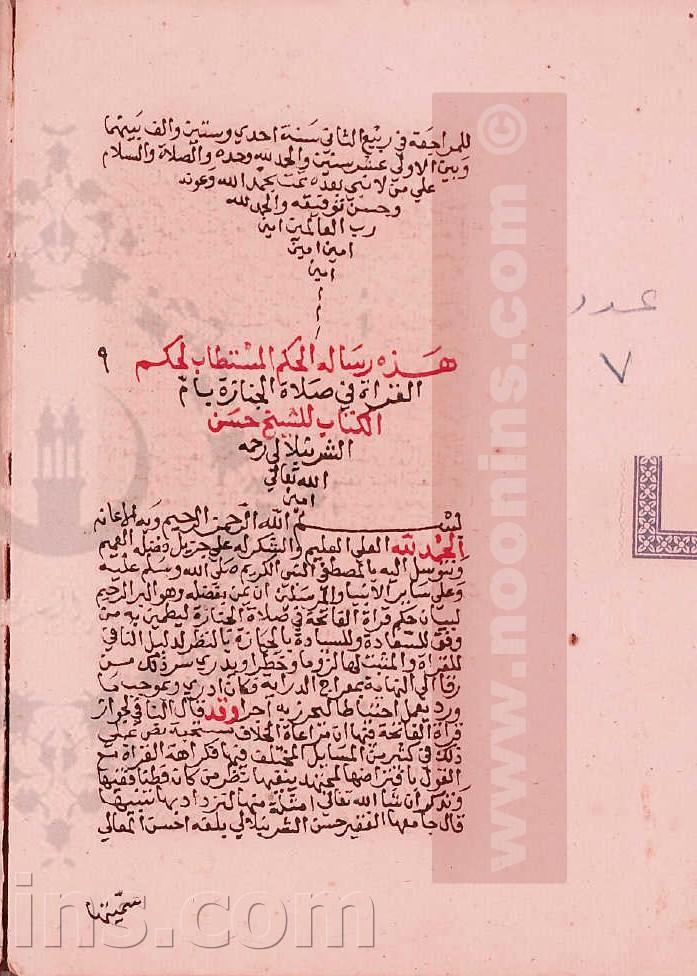 للمراجعة في ربيع الثاني سنة احدي وستين والف بينهما
وبين الاولي عشر سنين والحمد لله وحده والصلاة والسلام
علي من لا نبي بعده تمت بحمد الله وعونه
وحسن توفيقه والحمد لله
رب العالمين امين
امين امين
امين
هذه رسالة الحكم المستطاب لحكم
٩
القراة في صلاة الجنازة بام
الكتاب للشيخ حسن
الشرنبلالي رحمه
الله تعالي
امين
بسم الله الرحمن الرحيم وبه الاعانه
الحمد لله العلي العليم والشكر له علي جزيل فضله العميم
ونتوسل اليه بالمصطفي النبي الكريم صلي الله وسلم عليه
وعلي ساير الانبيا والمرسلين ان يمن بفضله وهو البر الرحيم
لبيان حكم قراة الفاتحة في صلاة الجنازة ليطمين به من
وفق للسعادة وللسيادة بالحيازة بالنظر لدليل النافي
للقراة والمثبت لها لزوما وحظرا ويدري سر ذلك من
رقا الي النهاية بمعراج الدراية فكان ادري وبموجب ما
ورد بهما احتياطا ليحرز به اجرا وقد قال النافي لجواز
قراة الفاتحة فيها ان مراعاة الخلاف مستحبة نص علي
ذلك في كثير من المسايل المختلف فيها فكراهة القراة مع
القول بافتراضها لمجتهد ينفيها نظر من كان فطنا فقيها
ونذكر ان شا الله تعالي امثلة منها لتزداد بها تنبيها
قال جامعها الفقير حسن الشرنبلالي بلغه احسن المعالي
سميتها
عدد
٧
© www.noonins.com
ins.com